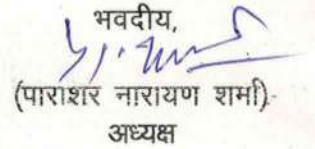 भवदीय,
(पाराशर नारायण शर्मा)
अध्यक्ष